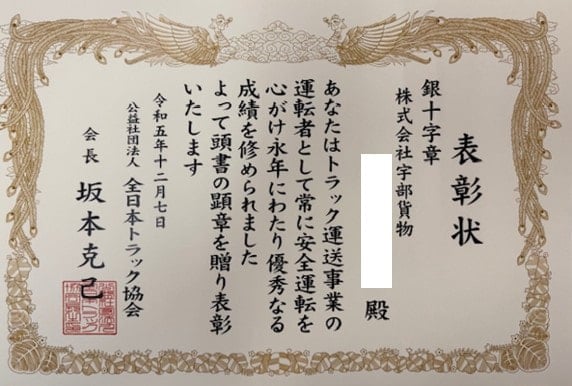 表彰状
銀十字章
株式会社宇部貨物
殿
あなたはトラック運送事業の
運転者として常に安全運転を
心がけ永年にわたり優秀なる
成績を修められました
よって頭書の顕章を贈り表彰
いたします
令和五年十二月七日
公益社団法人 全日本トラック協会
会長 坂本克己